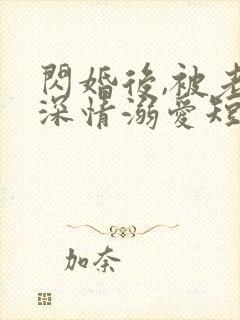 閃婚後,被老
深情溺愛短
加奈